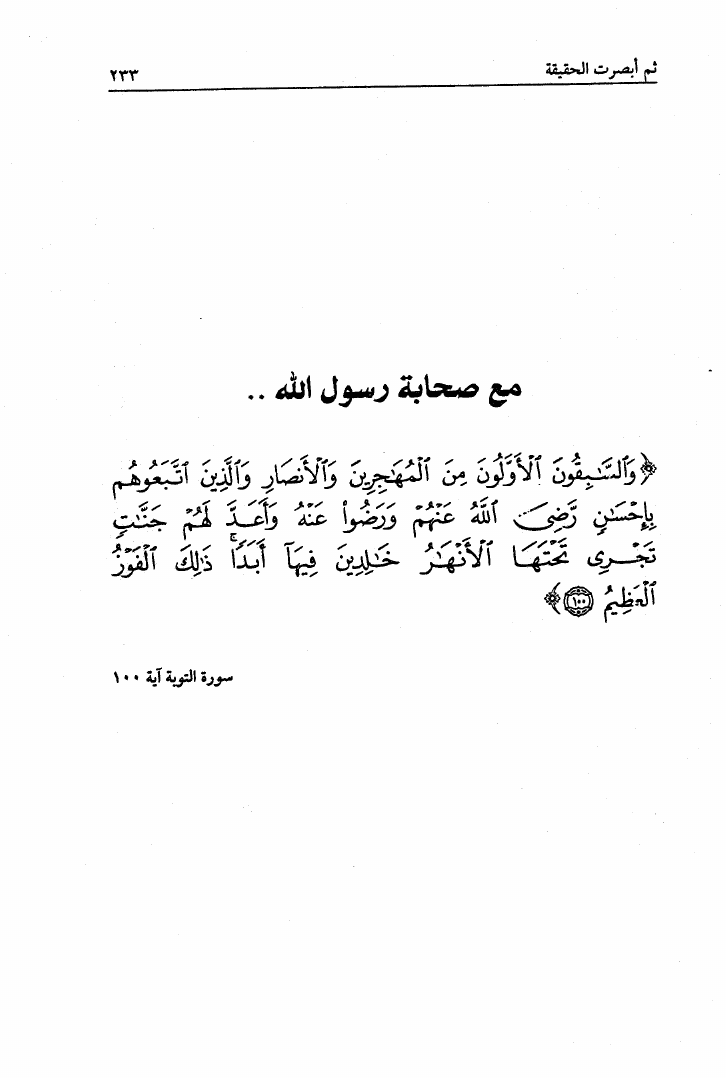 ثم أبصرت الحقيقة ٢٣٣
مع صحابة رسول الله ..
﴿وَٱلسَّٰبِقُونَ ٱلْأَوَّلُونَ مِنَ ٱلْمُهَٰجِرِينَ وَٱلْأَنصَارِ وَٱلَّذِينَ ٱتَّبَعُوهُم
بِإِحْسَٰنٍ رَّضِىَ ٱللَّهُ عَنْهُمْ وَرَضُوا۟ عَنْهُ وَأَعَدَّ لَهُمْ جَنَّٰتٍ
تَجْرِى تَحْتَهَا ٱلْأَنْهَٰرُ خَٰلِدِينَ فِيهَآ أَبَدًا ۚ ذَٰلِكَ ٱلْفَوْزُ
ٱلْعَظِيمُ ١٠٠﴾
سورة التوبة آية ١٠٠